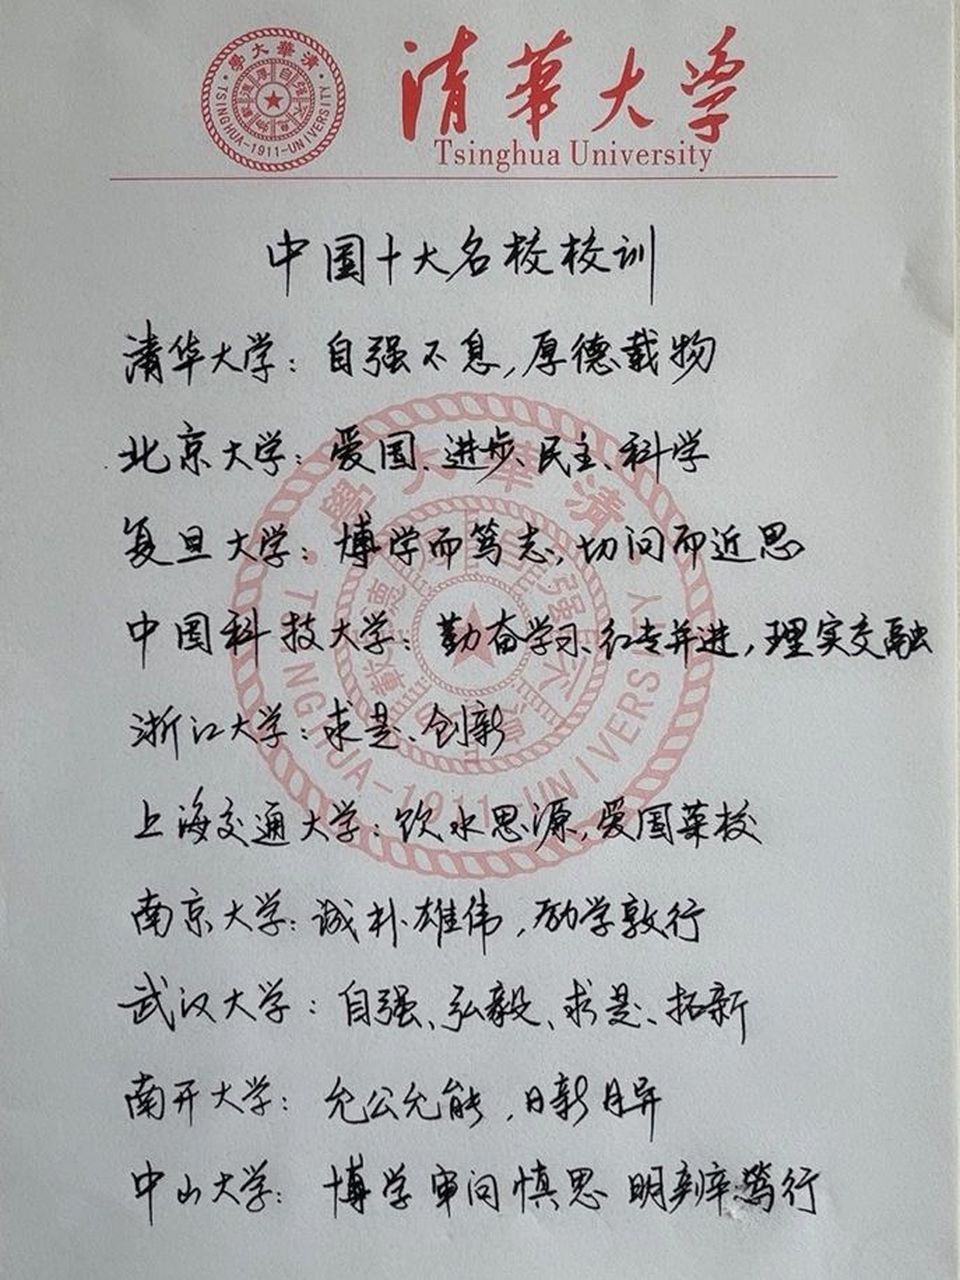 學大華清
TSINGHUA-1911-UNIVERSITY
清華大学
Tsinghua University
中国十大名校校训
清华大学：自强不息，厚德载物
北京大学：爱国、进步、民主、科学
复旦大学：博学而笃志，切问而近思
中国科技大学：勤奋学习、红专并进，理实交融
浙江大学：求是、创新
上海交通大学：饮水思源，爱国荣校
南京大学：诚朴雄伟，励学敦行
武汉大学：自强、弘毅、求是、拓新
南开大学：允公允能，日新月异
中山大学：博学审问慎思 明辨笃行
學大華清
TSINGHUA-1911-UNIVERSITY